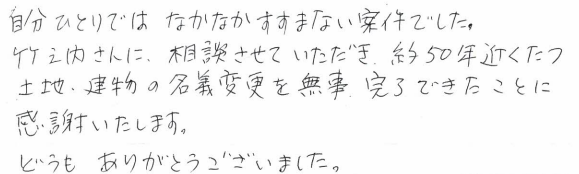 自分ひとりでは なかなかすすまない案件でした。
竹之内さんに、相談させていただき、約50年近くたつ
土地・建物の名義変更を無事、完了できたことに
感謝いたします。
どうも ありがとうございました。